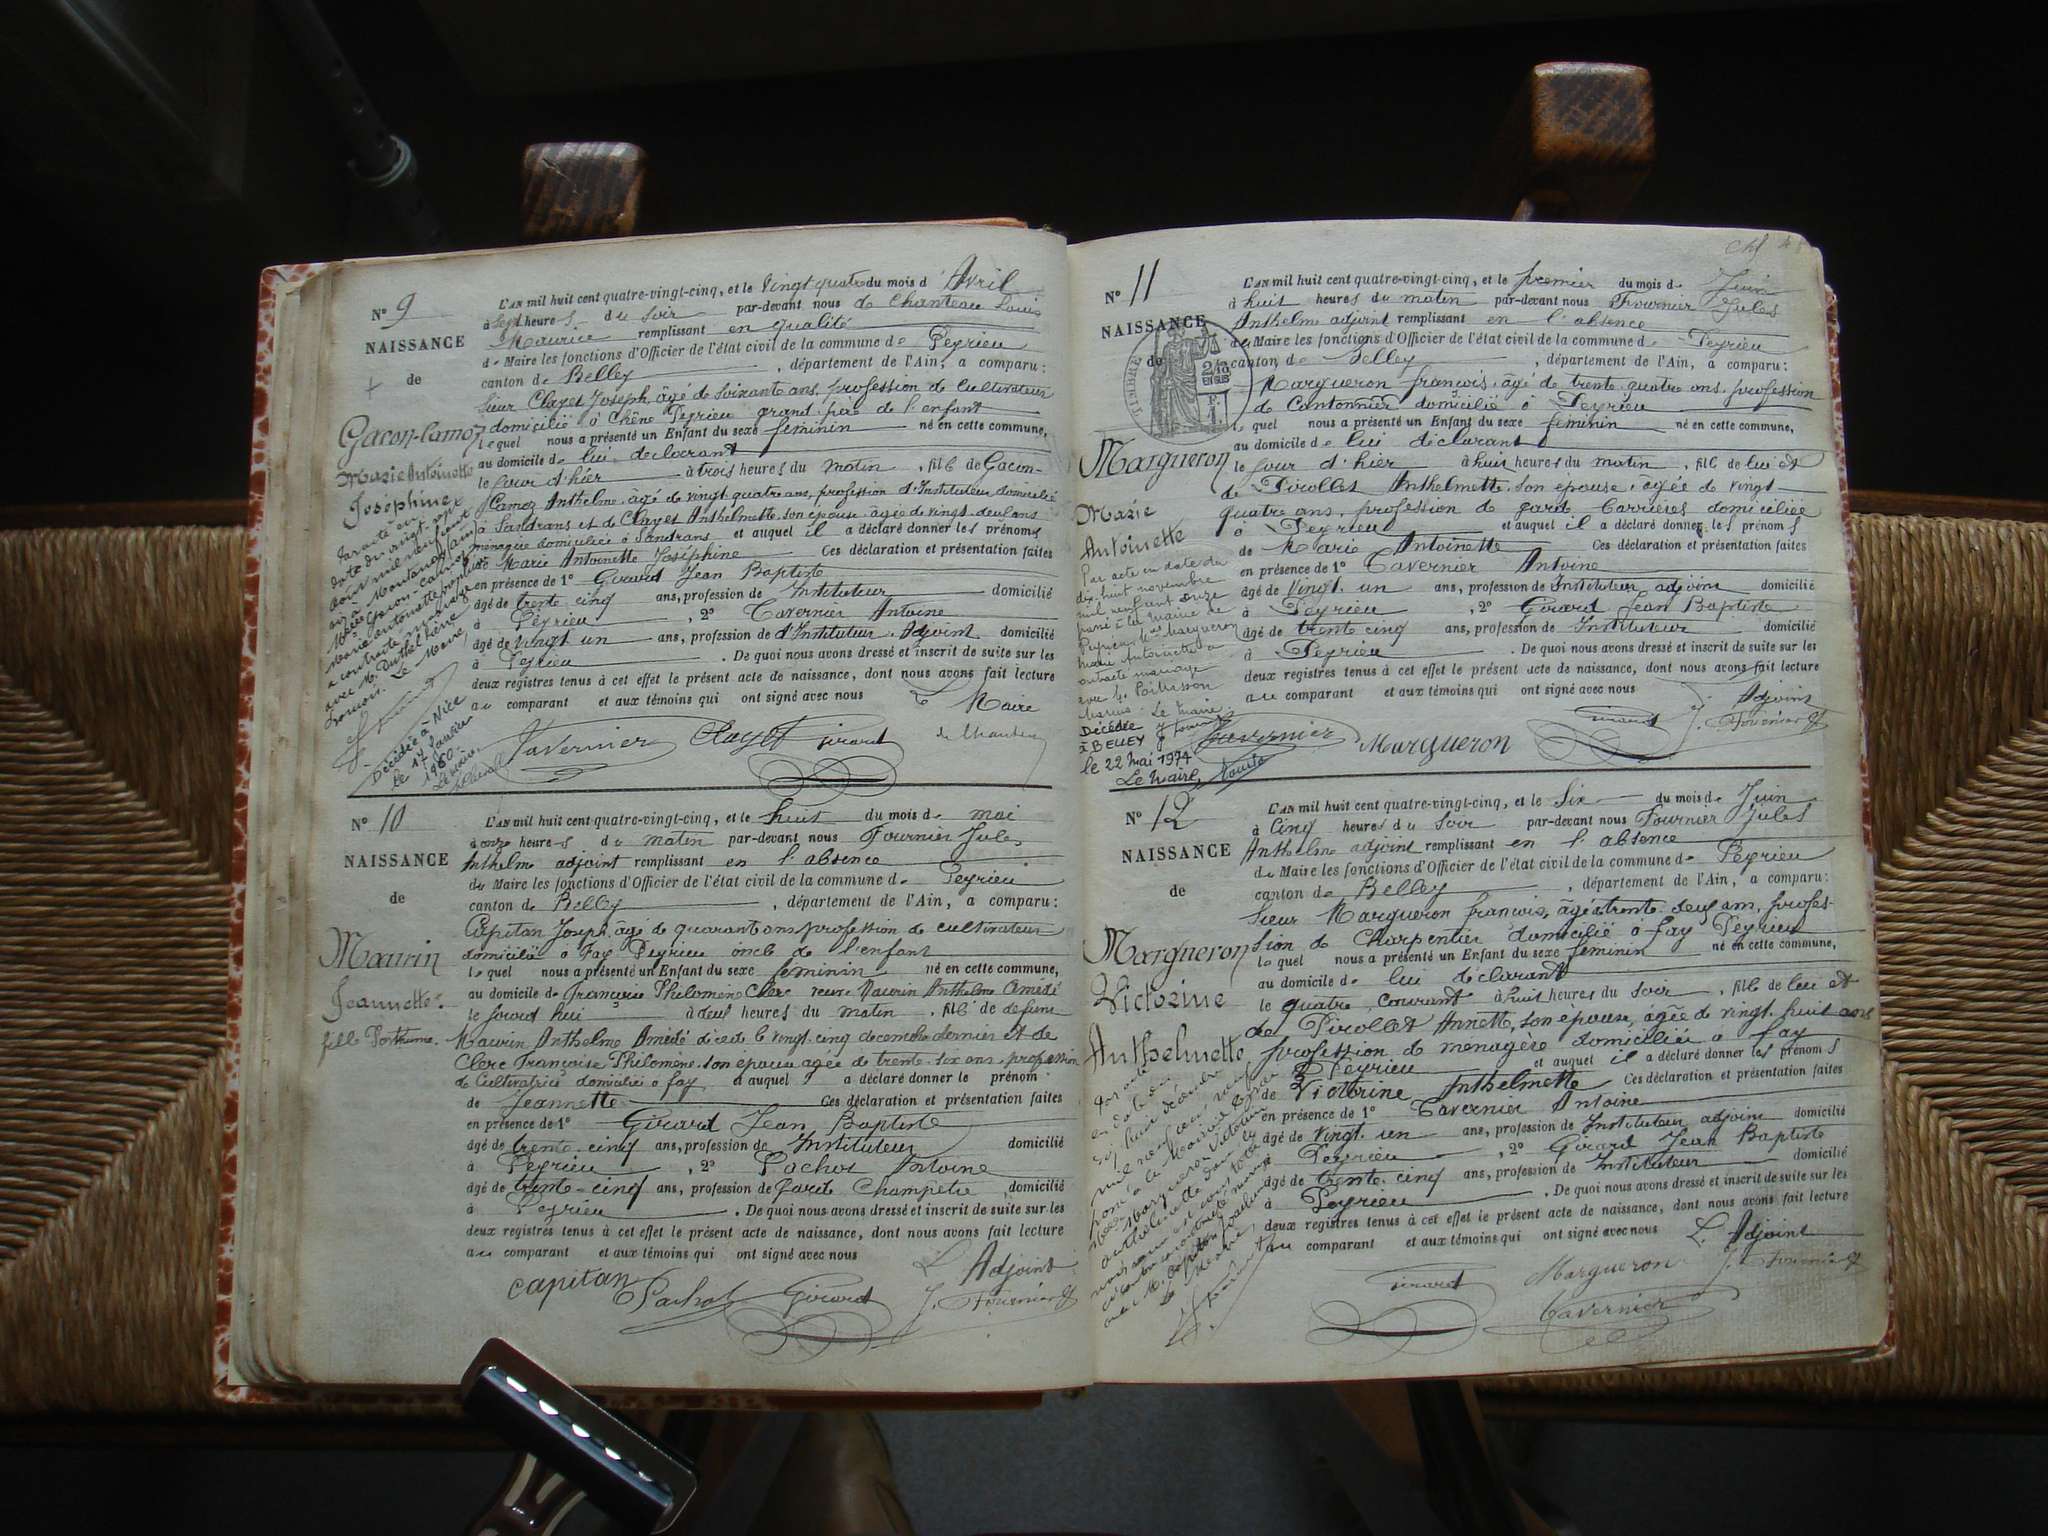 N° 9
NAISSANCE
de
Gacon-Camoz
Marie Antoinette
Joséphine
Par acte en
date du vingt-
deux mil neuf cent
Décédée à Nice
le 17 Janvier
1960
L'AN mil huit cent quatre-vingt-cinq, et le vingt quatre du mois d'Avril
à Sept heures du Soir par-devant nous de Chanteau Louis
Maurice remplissant en qualité
de Maire les fonctions d'Officier de l'état civil de la commune de Peyrieu
canton de Belley, département de l'Ain, a comparu :
Sieur Clayet Joseph, âgé de soixante ans, profession de Cultivateur
domicilié à Chêne Peyrieu grand-père de l'enfant
lequel nous a présenté un Enfant du sexe féminin né en cette commune,
au domicile de lui déclarant
le jour d'hier à trois heures du matin, fille de Gacon-
Camoz Anthelme âgé de vingt quatre ans, profession d'Instituteur domicilié
à Sandrans et de Clayet Anthelmette son épouse âgée de vingt-deux ans
ménagère domiciliée à Sandrans et auquel il a déclaré donner les prénoms
de Marie Antoinette Joséphine Ces déclaration et présentation faites
en présence de 1° Girard Jean Baptiste
âgé de trente-cinq ans, profession de Instituteur domicilié
à Peyrieu, 2° Tavernier Antoine
âgé de vingt un ans, profession d'Instituteur-Adjoint domicilié
à Peyrieu. De quoi nous avons dressé et inscrit de suite sur les
deux registres tenus à cet effet le présent acte de naissance, dont nous avons fait lecture
au comparant et aux témoins qui ont signé avec nous
Le Maire
Tavernier Clayet Girard de Chanteau
N° 10
NAISSANCE
de
Maurin
Jeannette
fille Posthume
L'AN mil huit cent quatre-vingt-cinq, et le huit du mois de mai
à onze heures du matin par-devant nous Fournier Jules
Anthelme adjoint remplissant en l'absence
du Maire les fonctions d'Officier de l'état civil de la commune de Peyrieu
canton de Belley, département de l'Ain, a comparu :
Capitan Joseph, âgé de quarante ans profession de cultivateur
domicilié à Fay Peyrieu oncle de l'enfant
lequel nous a présenté un Enfant du sexe féminin né en cette commune,
au domicile de Françoise Philomène Clerc veuve Maurin Anthelme Amédé
le jourd'hui à deux heures du matin, fille de defunt
Maurin Anthelme Amédé décédé le vingt cinq décembre dernier et de
Clerc Françoise Philomène son épouse agée de trente-six ans, profession
de Cultivatrice domiciliée à fay et auquel a déclaré donner le prénom
de Jeannette Ces déclaration et présentation faites
en présence de 1° Girard Jean Baptiste
âgé de trente-cinq ans, profession de Instituteur domicilié
à Peyrieu, 2° Pachot Antoine
âgé de trente-cinq ans, profession de Garde Champêtre domicilié
à Peyrieu. De quoi nous avons dressé et inscrit de suite sur les
deux registres tenus à cet effet le présent acte de naissance, dont nous avons fait lecture
au comparant et aux témoins qui ont signé avec nous
L'Adjoint
capitan Pachot Girard J. Fournier
N° 11
NAISSANCE
de
TIMBRE
2/10
EN SUS
Margueron
Marie
Antoinette
Par acte en date du
dix huit novembre
mil neuf cent onze
passé à la mairie de
Peyrieu Mlle Margueron
Marie Antoinette a
contracté mariage
avec
Marius. Le Maire
Décédée
à BELLEY
le 22 Mai 1974
Le Maire,
L'AN mil huit cent quatre-vingt-cinq, et le premier du mois de Juin
à huit heures du matin par-devant nous Fournier Jules
Anthelme adjoint remplissant en l'absence
du Maire les fonctions d'Officier de l'état civil de la commune de Peyrieu
canton de Belley, département de l'Ain, a comparu :
Margueron françois, âgé de trente-quatre ans, profession
de Cantonnier domicilié à Peyrieu
lequel nous a présenté un Enfant du sexe féminin né en cette commune,
au domicile de lui déclarant
le jour d'hier à huit heures du matin, fille de lui et
de Pirollet Anthelmette son épouse, agée de vingt
quatre ans, profession de garde Barrières domiciliée
à Peyrieu et auquel il a déclaré donner les prénoms
de Marie Antoinette Ces déclaration et présentation faites
en présence de 1° Tavernier Antoine
âgé de Vingt un ans, profession de Instituteur adjoint domicilié
à Peyrieu, 2° Girard Jean Baptiste
âgé de trente cinq ans, profession de Instituteur domicilié
à Peyrieu. De quoi nous avons dressé et inscrit de suite sur les
deux registres tenus à cet effet le présent acte de naissance, dont nous avons fait lecture
au comparant et aux témoins qui ont signé avec nous
L'Adjoint
Tavernier Margueron Girard J. Fournier
N° 12
NAISSANCE
de
Margueron
Victorine
Anthelmette
L'AN mil huit cent quatre-vingt-cinq, et le Six du mois de Juin
à Cinq heures du Soir par-devant nous Fournier Jules
Anthelme adjoint remplissant en l'absence
du Maire les fonctions d'Officier de l'état civil de la commune de Peyrieu
canton de Belley, département de l'Ain, a comparu :
Sieur Margueron françois, âgé de trente-deux ans, profes-
sion de Charpentier domicilié à fay Peyrieu
lequel nous a présenté un Enfant du sexe féminin né en cette commune,
au domicile de lui déclarant
le quatre courant à huit heures du soir, fille de lui et
de Pirollet Annette, son épouse, agée de vingt-huit ans
profession de ménagère domiciliée à fay
Peyrieu et auquel il a déclaré donner les prénoms
de Victorine Anthelmette Ces déclaration et présentation faites
en présence de 1° Tavernier Antoine
âgé de Vingt-un ans, profession de Instituteur adjoint domicilié
à Peyrieu, 2° Girard Jean Baptiste
âgé de trente-cinq ans, profession de Instituteur domicilié
à Peyrieu. De quoi nous avons dressé et inscrit de suite sur les
deux registres tenus à cet effet le présent acte de naissance, dont nous avons fait lecture
au comparant et aux témoins qui ont signé avec nous
L'Adjoint
Girard Margueron J. Fournier
Tavernier